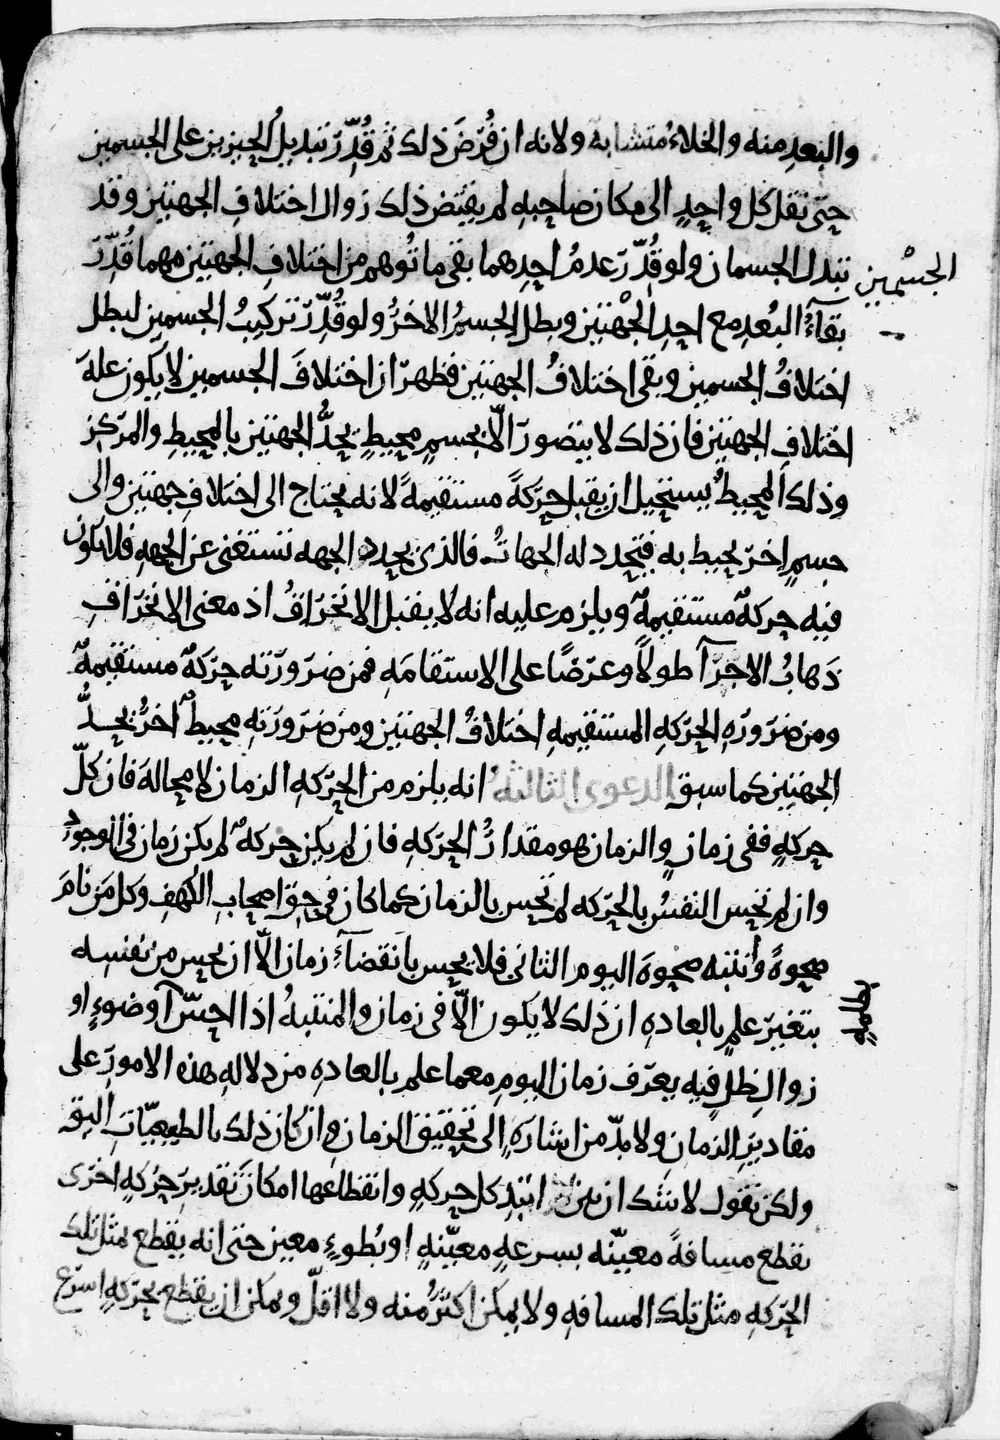 والبعد منه والخلاءُ متشابه ولانه ان فُرّضَ ذلك ثم قُدِّرَ تبديلُ الحيزين على الجسمين
حتى نقل كل واحدٍ الى مكان صاحبهِ لم يقتض ذلك زوال اختلافِ الجهتين وقد
تبدل الجسمان ولو قُدِّرَ عدمُ احدِهما بقى ما تُوهم من اختلافِ الجهتين مهما قُدِّرَ
الجسْمين
بقآءُ البُعدِ مع احدِ الجْهتين وبطل الجسمُ الاخرُ ولو قُدِّرَ تركيبُ الجسمين لبطل
اختلافُ الجسمين وبقى اختلافُ الجهتين فظهرَ ان اختلافَ الجسمين لا يكون علهَ
اختلافِ الجهتين فان ذلك لا يتصورَ الّا بجسمٍ محيطٍ يحدُّ الجهتين بالمحيطِ والمركزِ
وذلك المحيطُ يستحيل ان يقبل حركةً مستقيمةً لانه يحتاج الى اختلافِ جهتين والى
جسمٍ اخرَ يحيط به فتحدد له الجهاتُ فالذى يحدد الجهه تستغنى عن الجههِ فلا تكون
فيه حركهٌ مستقيمهٌ ويلزم عليه انه لا يقبل الانخرَاقُ اذ معنى الانخرَاقِ
ذَهابُ الاجزآ طولًا وعرَضًا على الاستقامَهِ فمن ضرَورَته حرَكهٌ مستقيمهٌ
ومن ضرَورَهِ الحرَكهِ المستقيمهِ اختلافُ الجهتين ومن ضرَورَتهِ محيطٌ اخرُ يحدُّ
الجهتين كما سبق الدعوى الثالثه انه يلزم من الحرَكهِ الزمان لا محالهَ فان كلّ
حركهٍ ففى زمانٍ والزمان هو مقدارُ الحرَكهِ فان لم يكن حركهٌ لم يكن زمان فى الوجودِ
وان لم تحِسِ النفسُ بالحرَكه لم تحس بالزمان كما كان فى حقِ اصحابِ الكهفِ وكل من نامَ
ضحوهً وانتبه ضحوهَ اليوم الثانى فلا يحس بانقضآءِ زمان الّا ان يحس من نفسِه
بتغيرَ علمٍ بالعادهِ ان ذلك لا يكون الّا فى زمانٍ والمنتبهُ اذا احسّ آ وضوءٍ او
زوالِ ظلٍ فيه يعرَف زمان اليومِ مع ما علم بالعادهِ من دلالهِ هذه الامورِ على
مقاديرِ الزمان ولا بدّ من اشارَهٍ الى تحقيق الزمانِ وان كان ذلك بالطبيعيّاتِ اليق
ولكن نقول لا شك ان بين ابتدِ كل حركهٍ وانقطاعها امكانَ تقديرَ حرَكهٍ اخرَى
يقطع مسافةً معيّنه بسرعهٍ معيّنهٍ او بُطوءٍ معين حتى انه يقطع بمثل تلك
الحرَكهِ مثل تلك المسافهِ ولا يمكن اكثرُ منه ولا اقلّ ويمكن ان يقطع بحرَكهٍ اسرَع